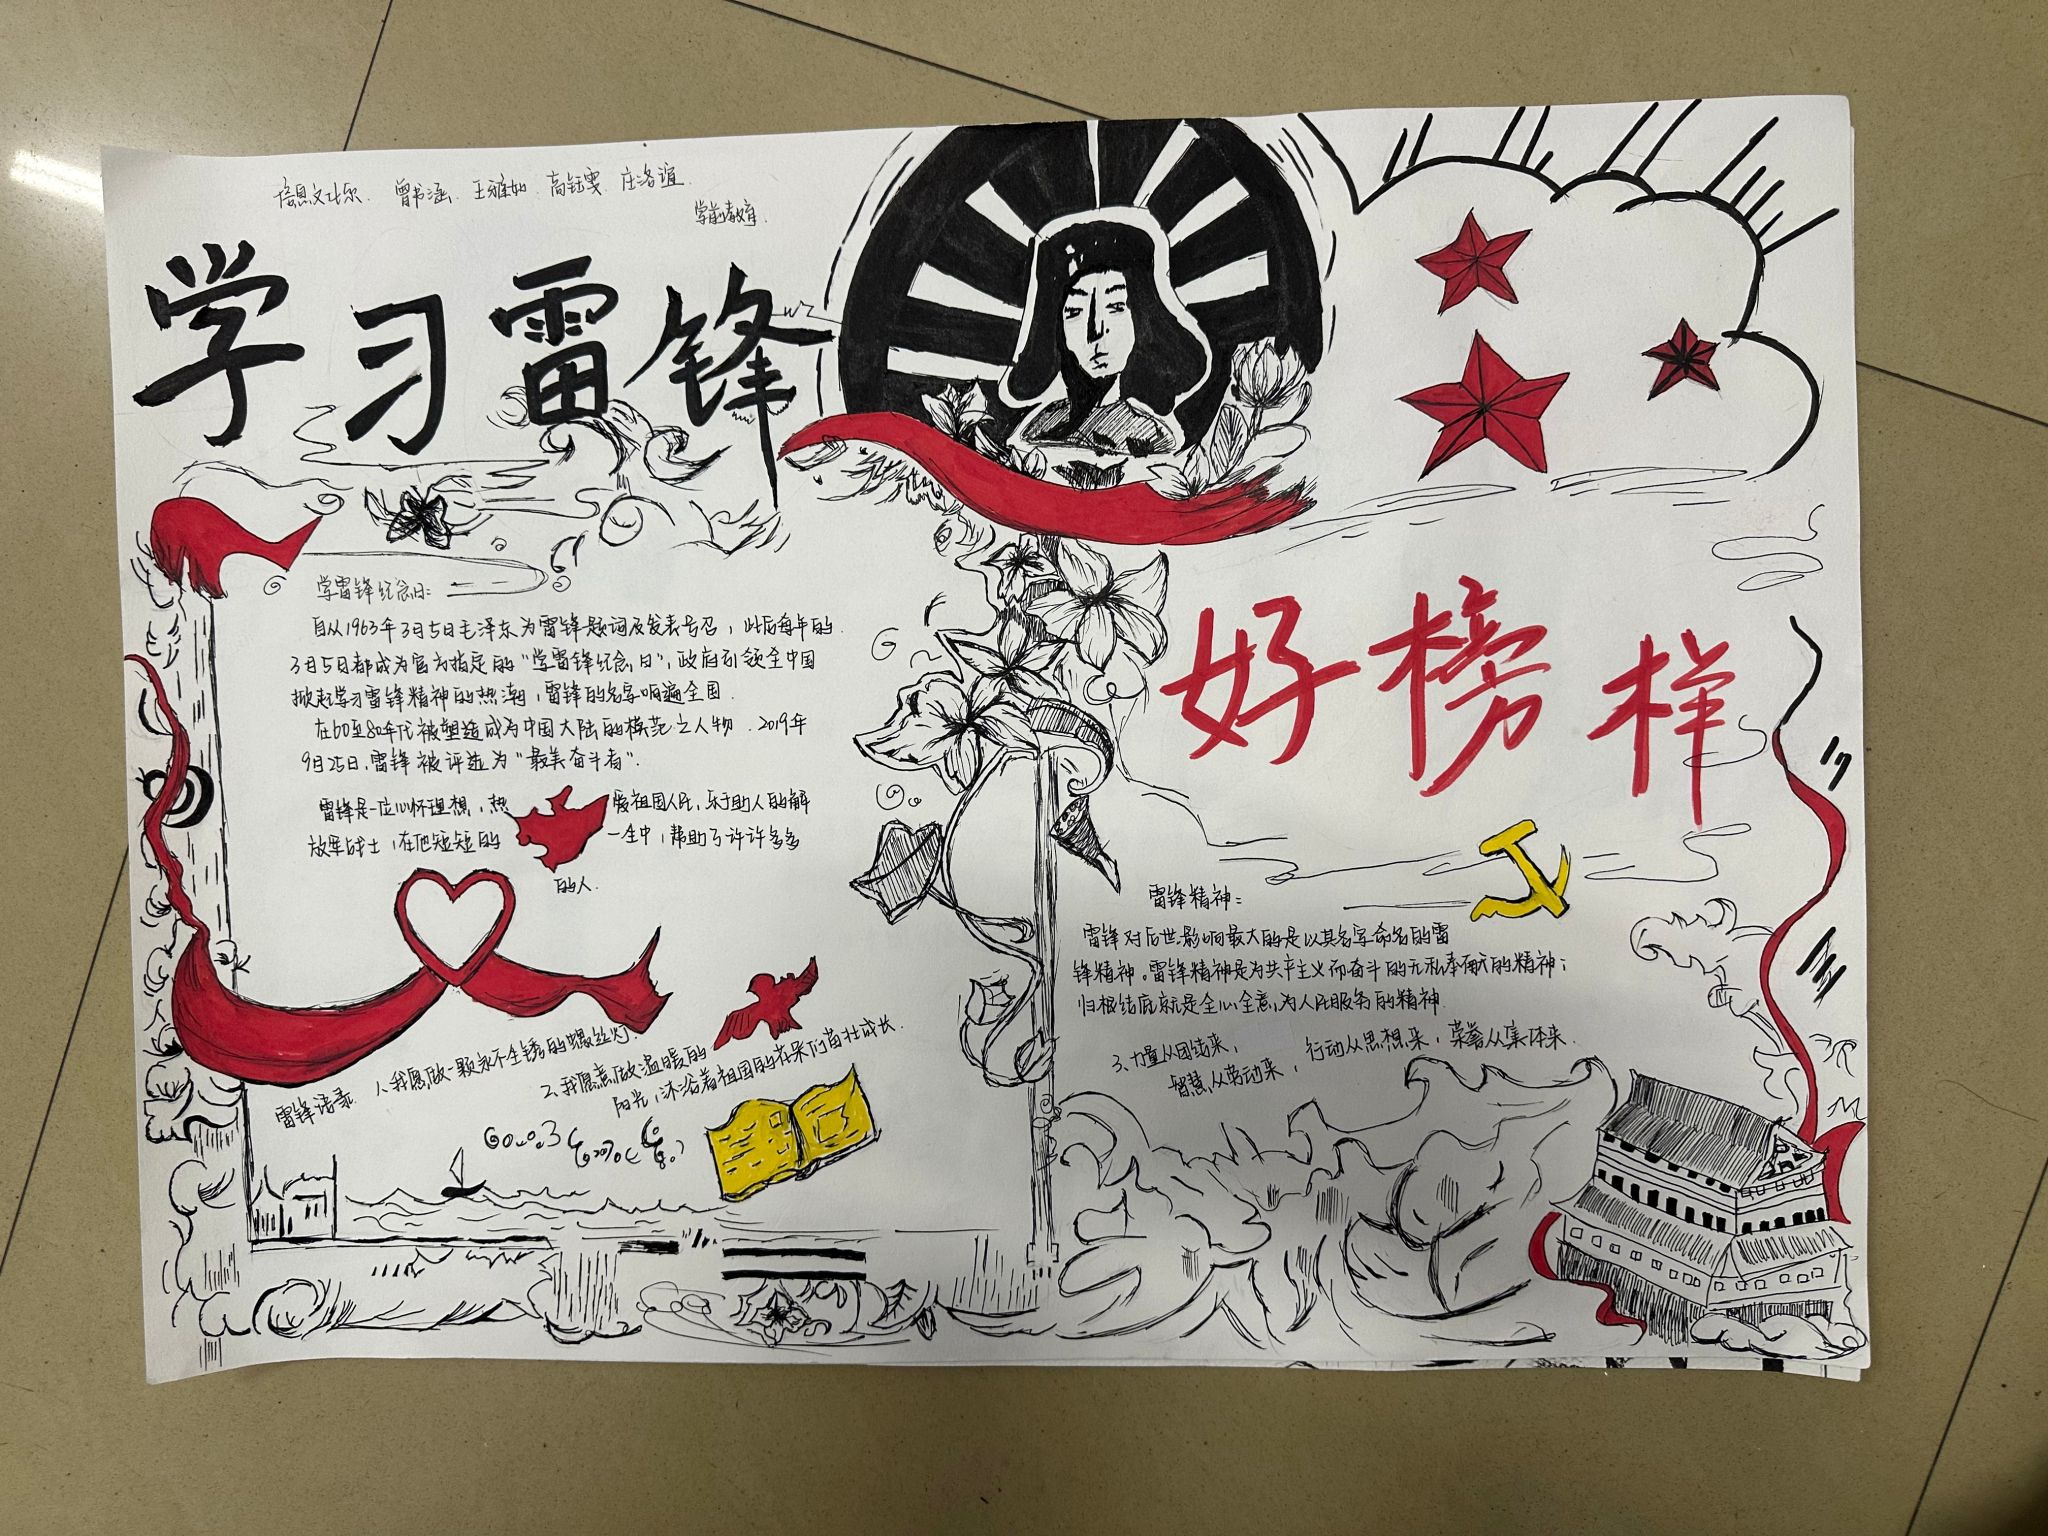 倍恩文比尔 曾书涵 王雅如 高钰雯 庄洛谊
学前教育
学习雷锋
好榜样
学雷锋纪念日:
自从1963年3月5日毛泽东为雷锋题词及发表号召,此后每年的
3月5日都成为官方指定的"学雷锋纪念日",政府引领全中国
掀起学习雷锋精神的热潮,雷锋的名字响遍全国.
在60至80年代被塑造成为中国大陆的模范之人物.2019年
9月25日,雷锋被评选为"最美奋斗者".
雷锋是一位心怀理想,热爱祖国人民,乐于助人的解
放军战士,在他短短的一生中,帮助了许许多多
的人.
雷锋语录. 1.我愿做一颗永不生锈的螺丝灯.
2.我愿意做温暖的
阳光,沐浴着祖国的花朵们茁壮成长.
雷锋精神:
雷锋对后世影响最大的是以其名字命名的雷
锋精神。雷锋精神是为共产主义而奋斗的无私奉献的精神;
归根结底就是全心全意,为人民服务的精神.
3.力量从团结来,
智慧从劳动来,
行动从思想来,荣誉从集体来.